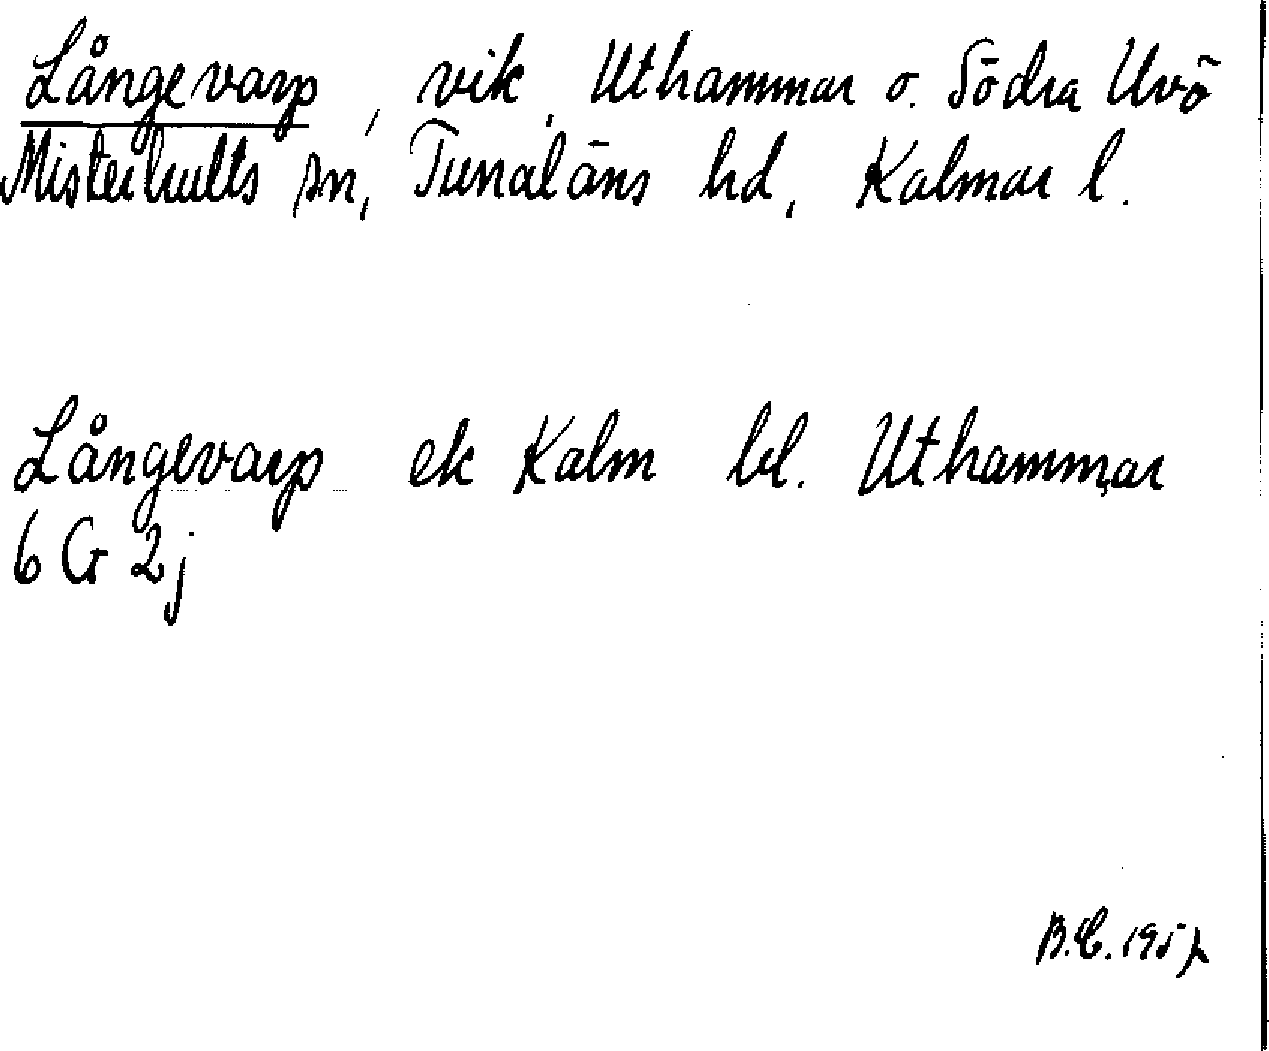 Långevarp, vik, Uthammar o. Södra Uvö
Misterhults sn, Tunaläns hd, Kalmar l.
Långevarp ek Kalm bl. Uthammar
6 G 2j
B.E. 1957